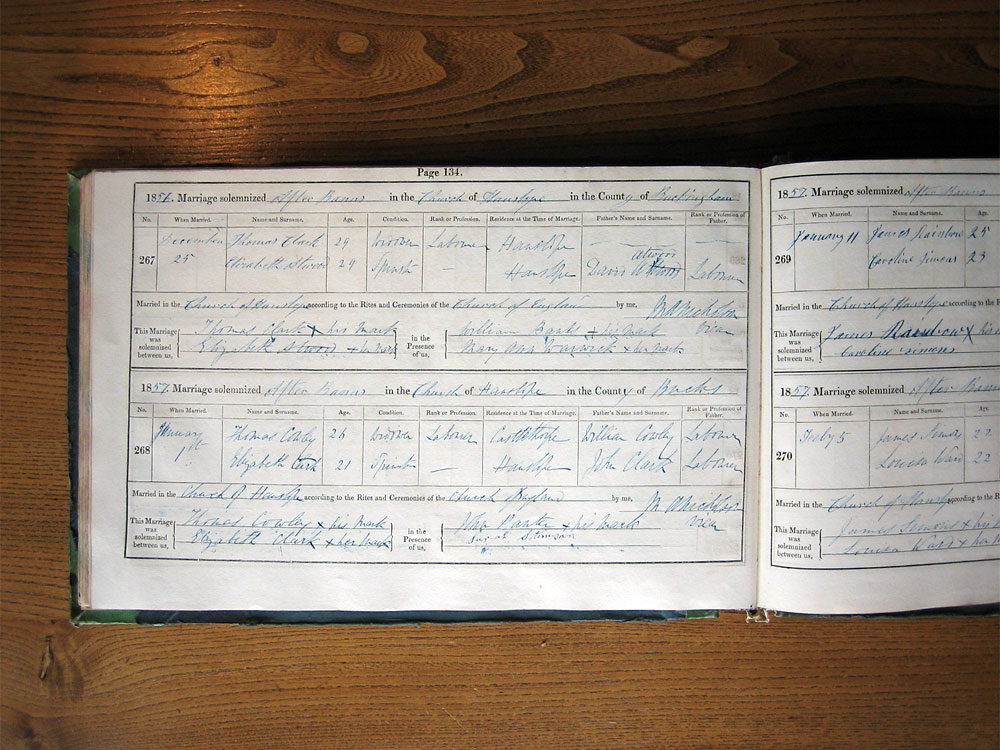 Page 134.
1856. Marriage solemnized After Banns in the Church of Hanslope in the County of Buckingham
No. When Married. Name and Surname. Age. Condition. Rank or Profession. Residence at the Time of Marriage. Father's Name and Surname. Rank or Profession of Father.
267 December 25 Thomas Clark 29 Widower Labourer Hanslope — —
Elizabeth Atwood 29 Spinst — Hanslope David Atwood Labourer
Married in the Church of Hanslope according to the Rites and Ceremonies of the Church of England by me, Vicar
This Marriage was solemnized between us, Thomas Clark x his mark in the Presence of us, William x his mark
Elizabeth Atwood x her mark Mary Ann Warwick x her mark
1857. Marriage solemnized After Banns in the Church of Hanslope in the County of Bucks
No. When Married. Name and Surname. Age. Condition. Rank or Profession. Residence at the Time of Marriage. Father's Name and Surname. Rank or Profession of Father.
268 January 1st Thomas Cowley 26 Widower Labourer Castlethorpe William Cowley Labourer
Elizabeth Clark 21 Spinster — Hanslope John Clark Labourer
Married in the Church of Hanslope according to the Rites and Ceremonies of the Church of England by me, Vicar
This Marriage was solemnized between us, Thomas Cowley x his mark in the Presence of us, John Panter x his mark
Elizabeth Clark x her mark Sarah Stimson
1857. Marriage solemnized After Banns
No. When Married. Name and Surname. Age
269 January 11 James Rainbow 25
Caroline Simons 23
Married in the Church of Hanslope according to the R
This Marriage was solemnized between us, James Rainbow x his
Caroline Simons
1857. Marriage solemnized After Banns
No. When Married. Name and Surname. Age
270 July 5 James Simons 22
Louisa Ward 22
Married in the Church of Hanslope according to the R
This Marriage was solemnized between us, James Simons x his
Louisa Ward x her m